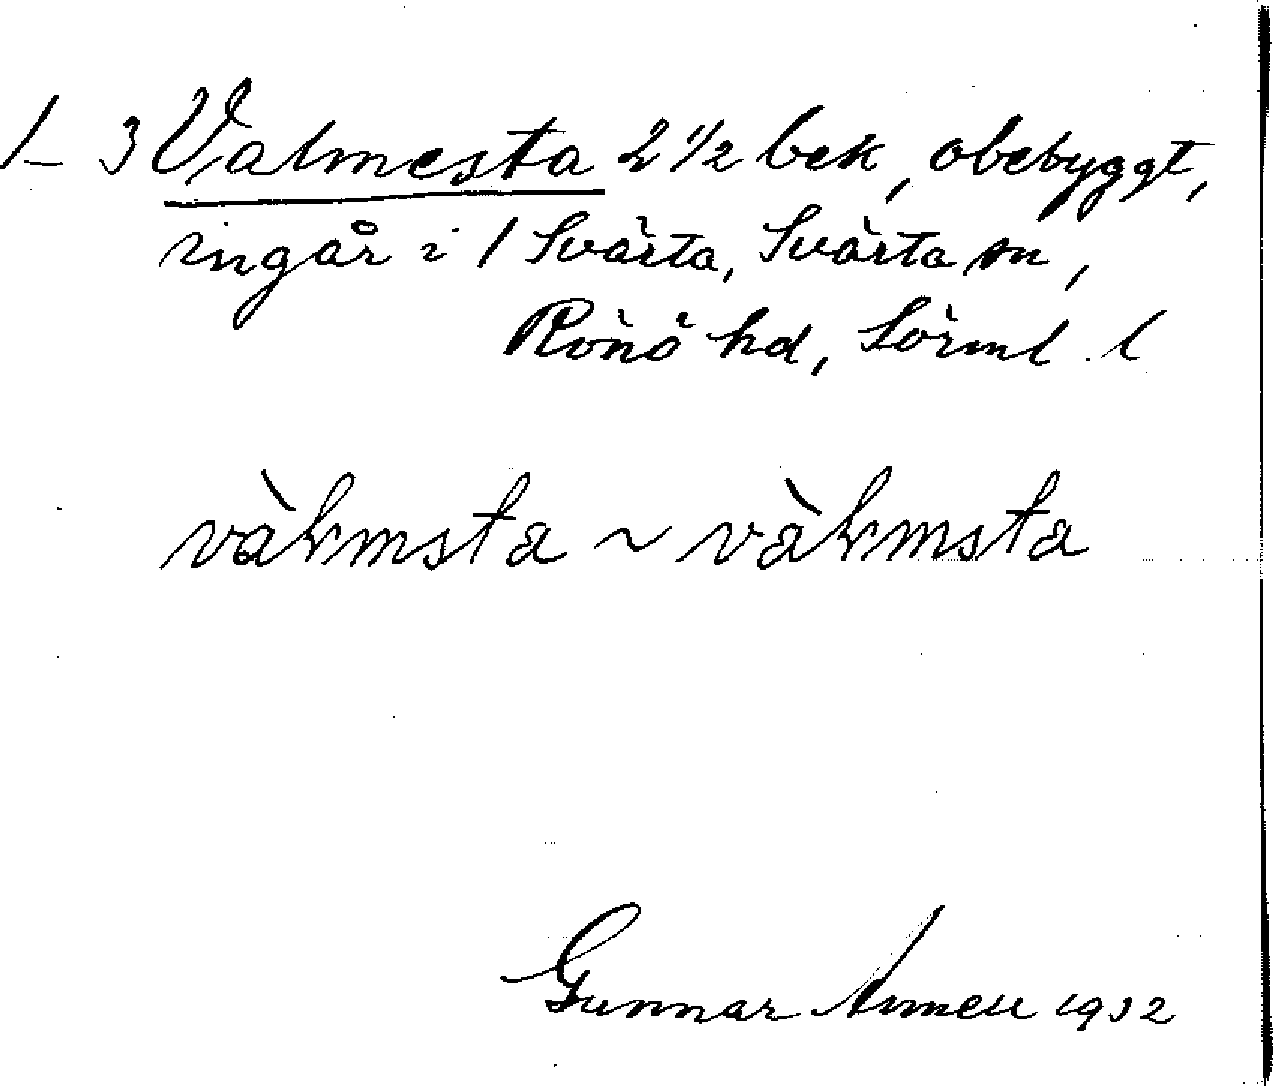 1-3 Valmesta 2 1/2 bek, obebyggt,
ingår i 1 Svärta, Svärta sn,
Rönö hd, Sörml. l
Gunnar 1932